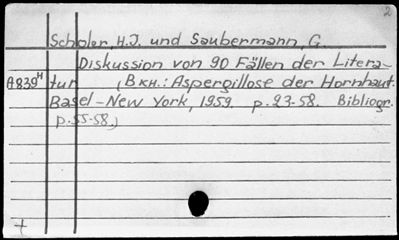 2
Scholer, H.J. und Saubermann, G.
Diskussion von 90 Fällen der Litera-
A839H tur (BKH.: Aspergillose der Hornhaut.
Basel-New York, 1959. p. 23-58. Bibliogr.
p. 55-58.)
+